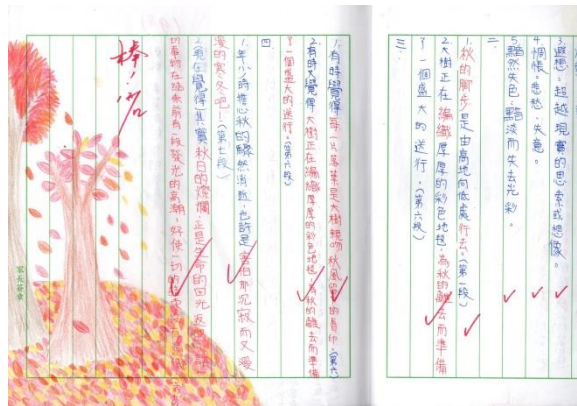 3.遐想:超越現實的思索或想像。
4.惆悵:悲愁、失意。
5.黯然失色:黯淡而失去光彩。
二
1.秋的腳步,是由高地向低處行去。(第一段)
2.大樹正在編織厚厚的彩色地毯,為秋的離去而準備
了一個盛大的送行。(第六段)
三
1.有時覺得每一片落葉是大樹親吻秋風的
2.有時又覺得大樹正在編織厚厚的彩色地毯,為秋的離去而準備
了一個盛大的送行。(第六段)
四
1.年少時擔心秋的驟然消逝,也許是害怕那沉寂而又漫
漫的寒冬吧!(第七段)
2.現在覺得其實秋日的燦爛,正是生命的回光返
切事物在結束前有一段發光的高潮,好使一切的
棒!
家長簽章